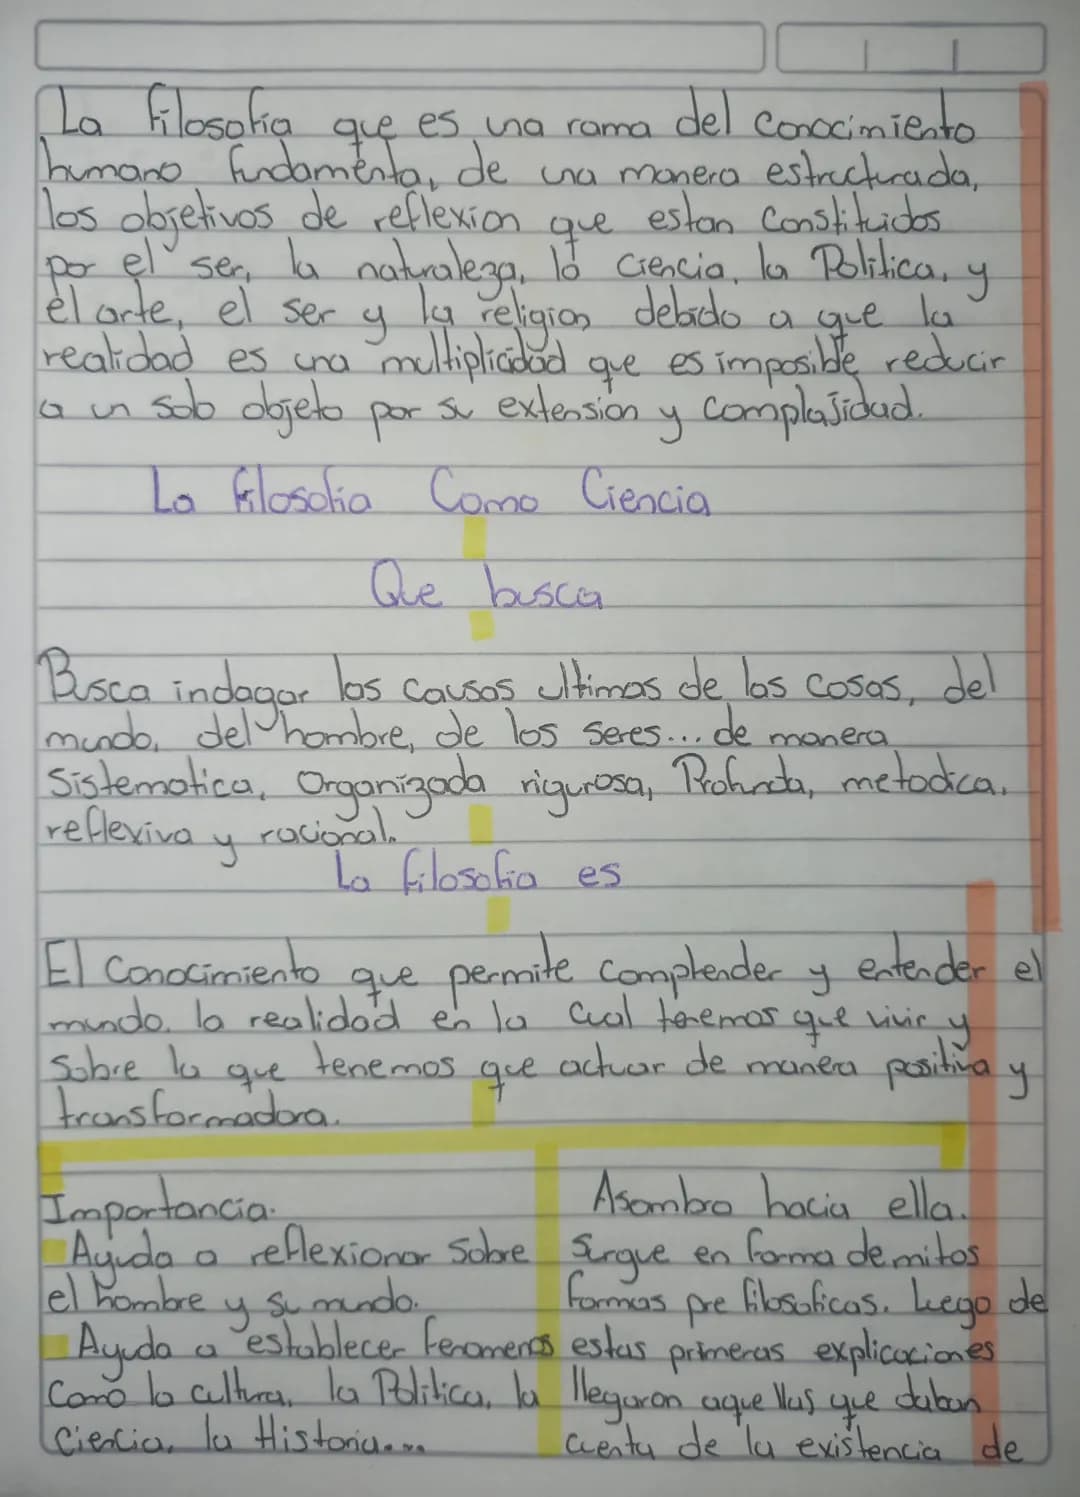 La filosofia que es una rama del conocimiento
humano fundamenta, de una manera estructurada,
los objetivos de reflexion que estan constituidos
por el ser, la naturaleza, la ciencia, la Politica, y
el arte, el ser y la religion debido a que la
realidad es una multiplicidad que es imposible reducir
a un solo objeto por su extensión y complajidad.
La filosofia Como Ciencia
Que busca
Busca indagar las causas ultimas de las cosas, del
mundo, del hombre, de los seres... de manera
Sistematica, Organizada rigurosa, Profunda, metodica,
reflexiva y racional.
La filosofia es
El Conocimiento que permite comprender y entender el
mundo, la realidad en la cual tenemos que vivir y
Sobre la que tenemos que actuar de manera positiva y
transformadora.
Importancia.
Ayuda a reflexionar Sobre
el hombre y su mundo.
Ayuda a establecer fenomenos
Como la cultura, la Politica, la
Ciencia, la Historia....
Asombro hacia ella.
Surgue en forma de mitos
formas pre filosoficas. Luego de
estas primeras explicaciones
llegaron aquellas que daban
cuenta de la existencia de